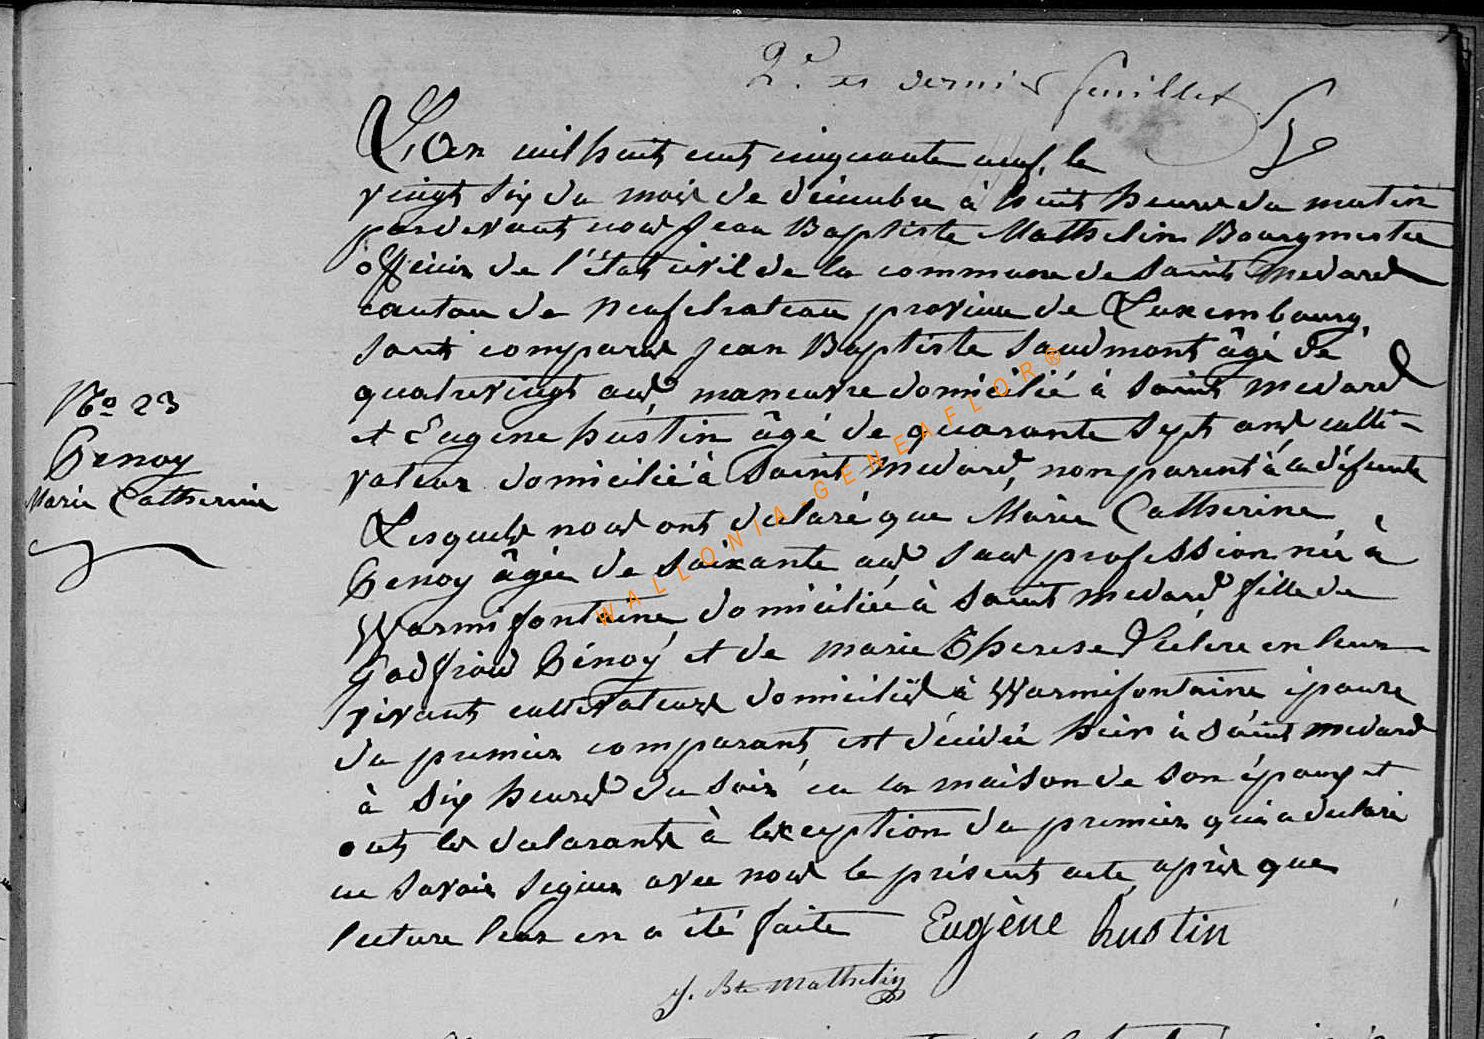 2e et dernier feuillet
L'an mil huit cent cinquante neuf, le
vingt six du mois de décembre à huit heures du matin
pardevant nous Jean Baptiste Mathelin Bourgmestre
officier de l'état civil de la commune de Saint Medard
canton de Neufchateau province de Luxembourg,
sont comparus Jean Baptiste Saudmont âgé de
quatrevingt ans, manœuvre domicilié à Saint Medard
et Eugène hustin âgé de quarante sept ans culti-
vateur domicilié à Saint Medard, non parent à la défunte
Lesquels nous ont declaré que Marie Catherine
Genoy âgée de soixante ans sans profession née à
Warmifontaine, domiciliée à Saint Medard fille de
Godfroid Génoy et de marie Therese Leclere en leur
vivant cultivateurs domiciliés à Warmifontaine épouse
du premier comparant, est décédée hier à Saint Medard
à six heures du soir en la maison de son époux et
ont les declarants à lexception du premier qui a declaré
ne savoir signer avec nous le présent acte après que
lecture leur en a été faite Eugène hustin
J. Bte Mathelin
No 23
Genoy
Marie Catherine
WALLONIA-GENEAFLOR®